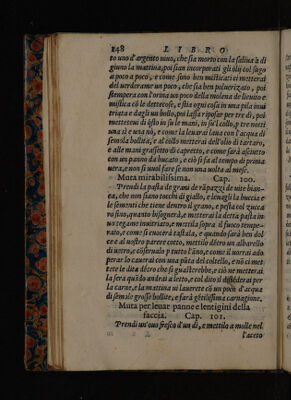 148 LIBRO
to uno d'argento uiuo, che sia morto con la saliua à di
giuno la mattina, poi sian incorporati gli olij col sugo
a poco a poco, e come sono ben misticati ci metterai
del uerderame un poco, che sia ben poluerizato, poi
stempera con l'orina un poco della molena de lieuito e
mistica cō le dette cose, e stia ogni cosa in una pila inui
triata e dagli un bollo, poi lassa riposar per tre dì, poi
metterene di q̄sto in su le mani, in su'l collo, p tre notti
una sì e una nò, e come la leuarai laua con l'acqua di
semola bollita, e al collo metterai dell'olio di tartaro,
e alle mani grassetto di capretto, e come sarà asciutto
con un panno da bucato, e ciò si fa al tempo di prima
uera, e non si uuol fare se non una uolta al mese.
Muta mirabilissima. Cap. 100.
Prendi la pasta de grani de rapazzi de uite bian-
ca, che non siano tocchi di giallo, e leuagli la buccia e
le sementi che tiene dentro il grano, e pesta col zucca
ro fino, quanto bisognerà, e metterai la detta pasta in
uno tegame inuitriato, e mettila sopra il fuoco tempe-
rato, e come si cuocerà tastala, e quando sarà ben dol
ce e al uostro parere cotto, mettilo dētro un albarello
di uetro, e cōseruaʼlo p tutto l'āno, e come il uorrai ado
perar lo cauerai con una pūta del coltello, e nō ci met
tete le dita dētro che si guasterebbe, e ciò ne metterai
la sera quādo andate a letto, e col dito il distēderai per
la carne, e la mattina ui lauerete cō un poco d'acqua
di semole grosse bollite, e farà gētilissima carnagione.
Muta per leuar panne e lentigini della
faccia. Cap. 101.
Prendi un'ouo fresco d'un dì, e mettilo a molle nel
l'aceto